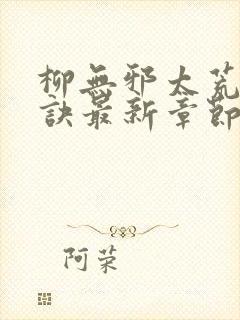 柳無邪太荒
訣最新章節
阿荣